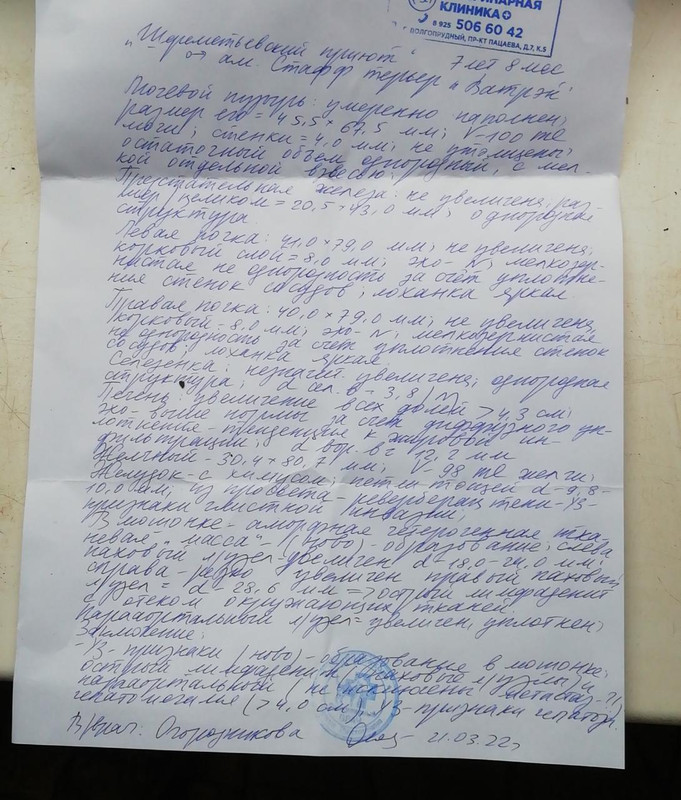 НАРНАЯ
КЛИНИКА
8 925 506 60 42
ДОЛГОПРУДНЫЙ, ПР-КТ ПАЦАЕВА, Д.7, К.5
"Шереметьевский приют" 7 лет 8 мес
ам. Стафф терьер "Ватрэй"
Мочевой пузырь: умеренно наполнен;
размер его = 45,5 × 67,5 мм; V-100 мл
мочи; стенки = 4,0 мм; не утолщены;
остаточный объем однородный, с мел-
кой отдельной взвесью.
Предстательная железа: не увеличена, раз-
мер целиком = 20,5 × 43,0 мм; однородная
структура.
Левая почка: 41,0 × 79,0 мм; не увеличена;
корковый слой = 8,0 мм; эхо- N; мелкозер-
нистая не однородность за счёт уплотне-
ния стенок сосудов; лоханка яркая.
Правая почка: 40,0 × 79,0 мм; не увеличена,
корковый - 8,0 мм; эхо- N; мелкозернистая
не однородность за счет уплотнения стенок
сосудов; лоханка яркая
Селезенка: незначит. увеличена; однородная
структура; d сел. в - 3,8
Печень: увеличение всех долей > 4,3 см;
эхо- выше нормы за счет диффузного уп-
лотнения - тенденция к жировой ин-
фильтрации; d вор. в = 12,2 мм
Желчный - 30,4 × 80,7 мм; V-98 мл желчи;
Желудок - с химусом; петли тощей d - 9,8-
10,0 мм; из просвета - ревербераци тени - УЗ-
признаки глистной инвазии;
В мошонке - аморфная гетерогенная тка-
невая "масса" - (ново) - образование; слева
паховый л/узел - увеличен d = 18,0 - 24,0 мм;
справа - резко увеличен правый паховый
л/узел = d = 28,6 мм => острый лимфаденит
с отеком окружающих тканей.
Парааортальный л/узел = увеличен, уплотнен;
Заключение:
- УЗ - признаки (ново) - образование в мошонке;
острый лимфаденит паховые л/узлы и
парааортальный (не исключены метастаз - ?!)
гепатомегалия (> 4,0 см) УЗ - признаки
В/врач: Огородникова 21.03.22г